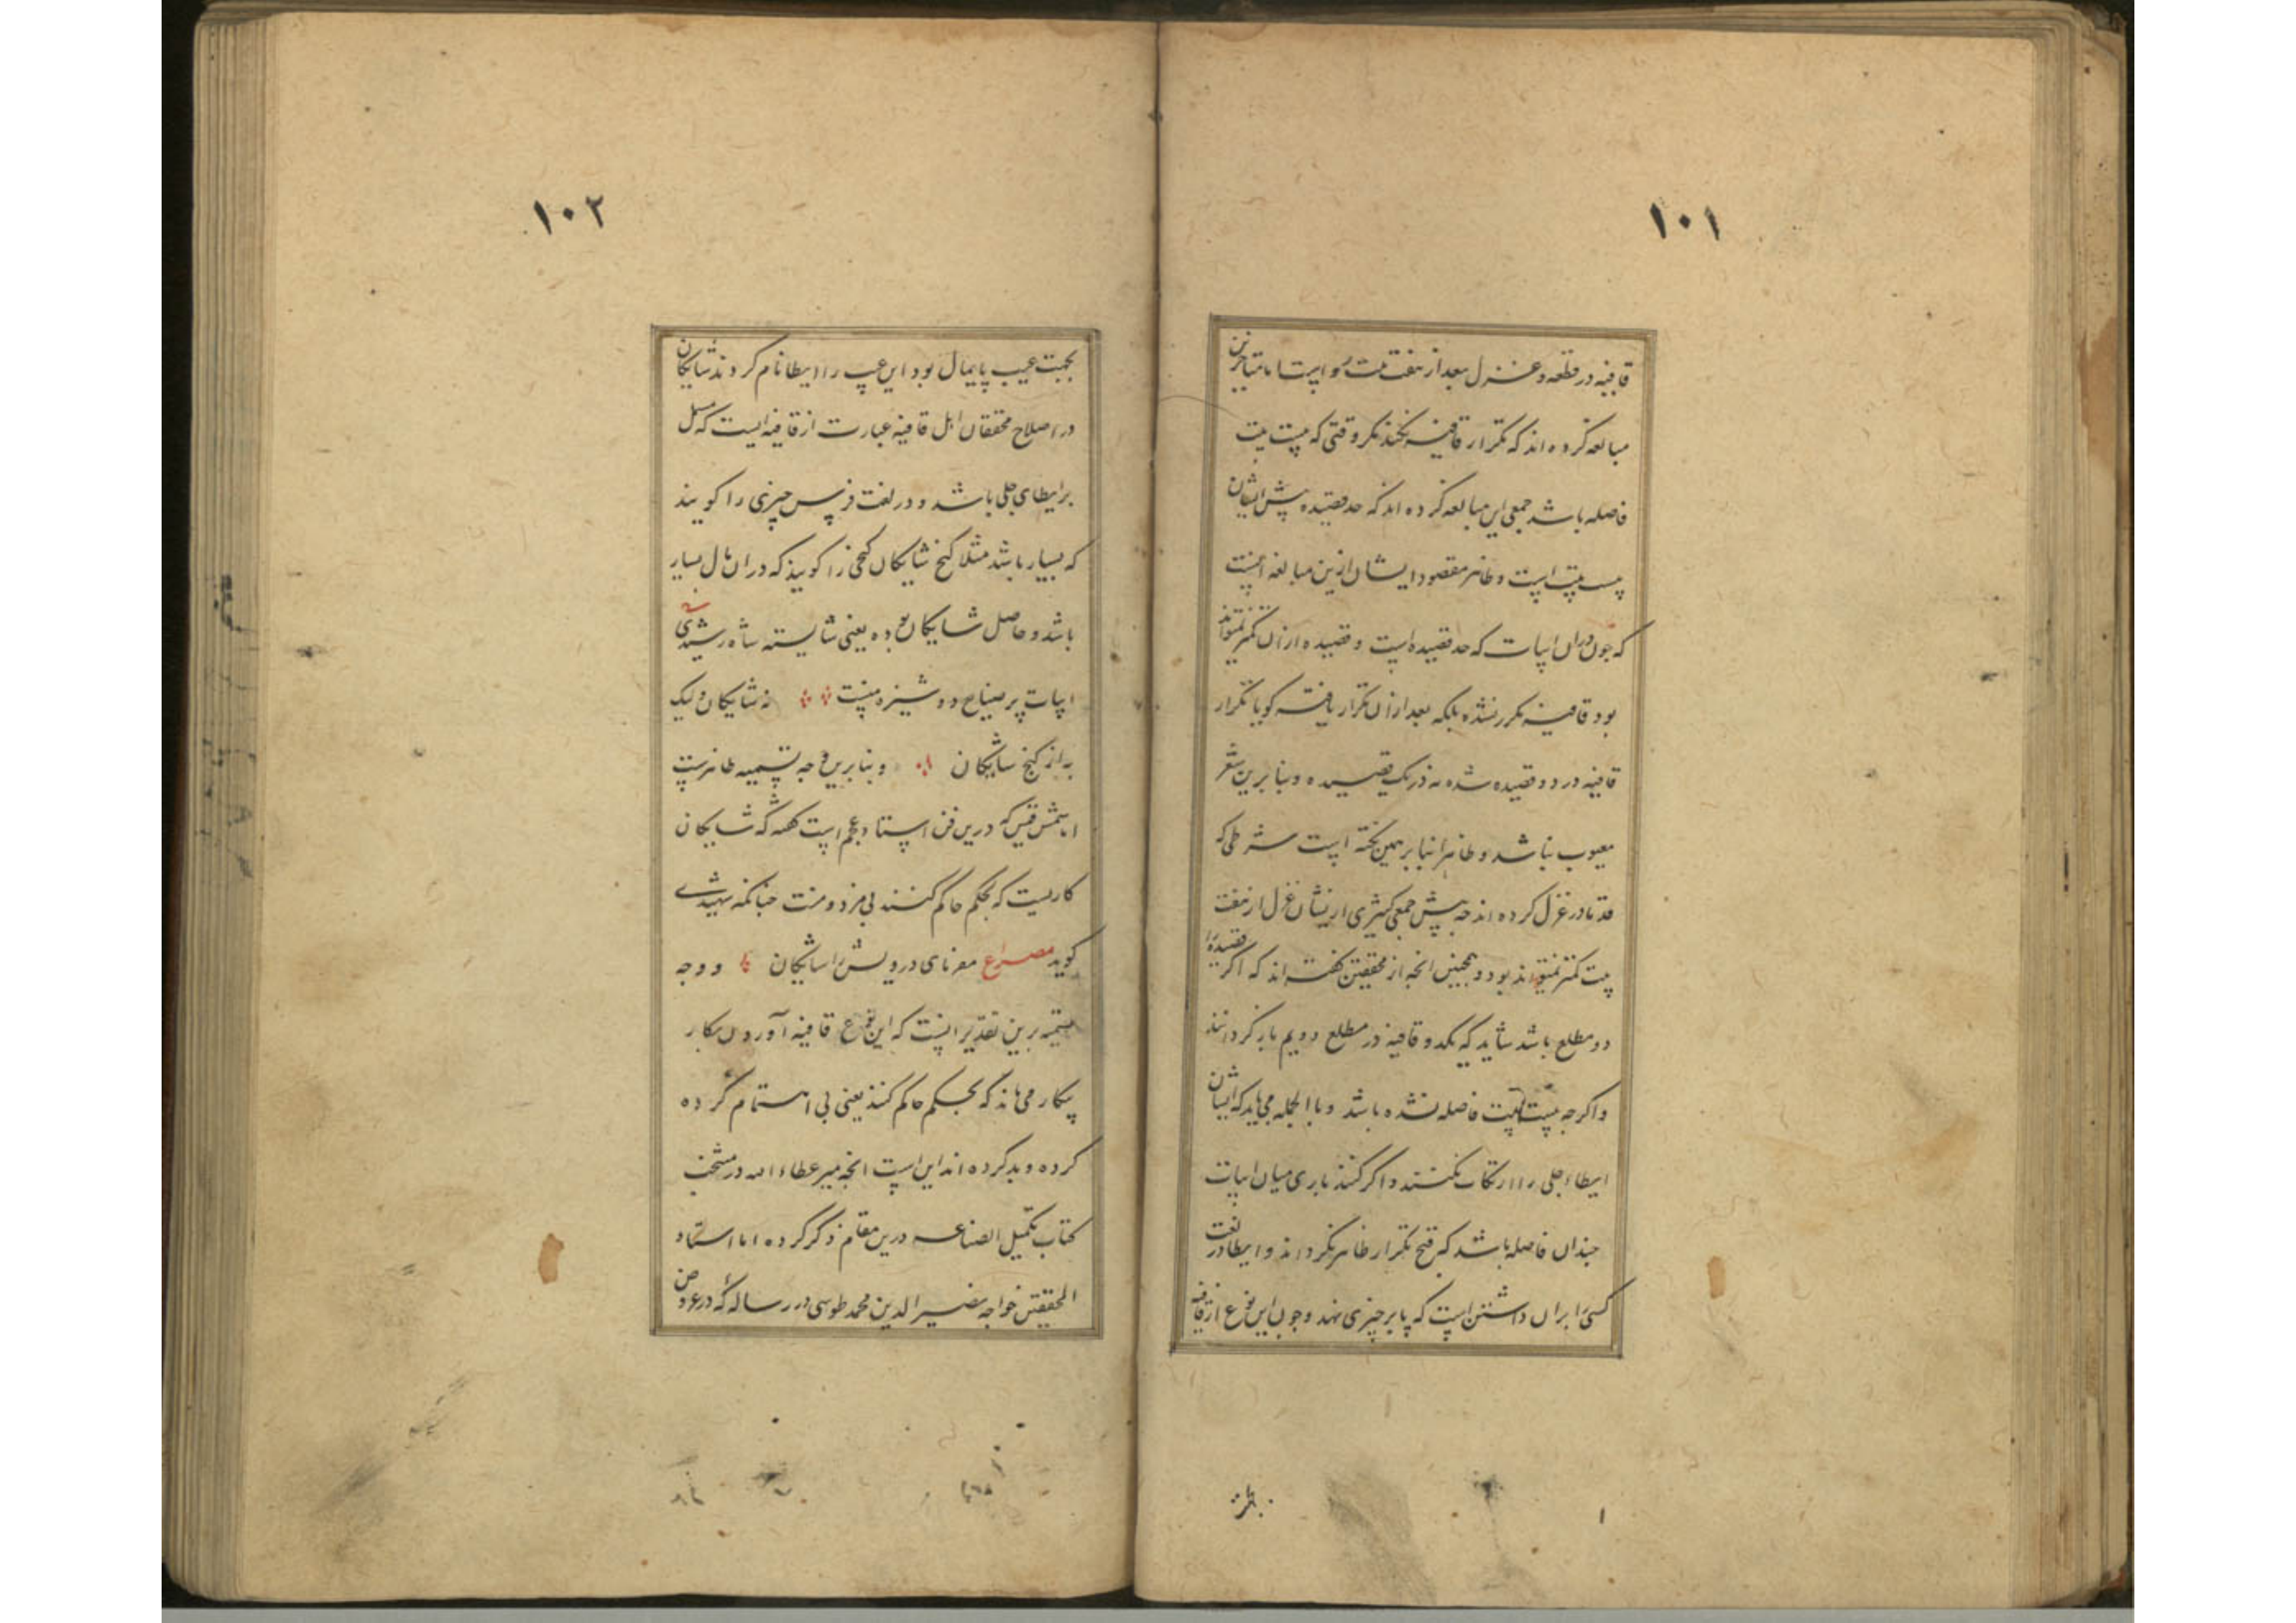 ۱۰۱
قافیه در قطعه و غزل بعد از هفت بیت رواست اما متاخرین
مبالغه کرده اند که تکرار قافیه نکنند مکر وقتی که بیست بیت
فاصله باشد جمعی این مبالغه کرده اند که حد قصیده پیش ایشان
بیست بیت است و ظاهر مقصود ایشان ازین مبالغه اینست
که چون دران ابیات که حد قصیده است و قصیده ازان کمتر نمیتواند
بود قافیه مکرر نشده بلکه بعد ازان تکرار یافته کویا تکرار
قافیه در دو قصیده شده نه در یک قصیده و بنا برین شعر
معیوب نباشد و ظاهرا بنا بر همین نکته است شرطی که
قدما در غزل کرده اند چه پیش جمعی کثیری ازیشان غزل از هفت
بیت کمتر نمیتواند بود و همچنین انچه از محققین کفته اند که اکر قصیده را
دو مطلع باشد شاید که یکدو قافیه در مطلع دویم باز کردانند
و اکرچه بیست بیت فاصله نشده باشد و بالجمله می باید که ایشان
ایطاء جلی را ارتکاب نکنند و اکر کنند باری میان ابیات
چندان فاصله باشد که قبح تکرار ظاهر نکرداند و ایطا در لغت
کسی را بران داشتن است که پا بر چیزی نهد و چون این نوع از قافیه
۱۰۲
بجهت عیب پایمال بود این عیب را ایطا نام کردند شایکان
در اصلاح محققان اهل قافیه عبارت از قافیه ایست که مشتمل
بر ایطای جلی باشد و در لغت فرس چیزی را کویند
که بسیار باشد مثلا کنج شایکان کنجی را کویند که دران مال بسیار
باشد و حاصل شایکان بوده یعنی شایسته شاه رشیدی
ابیات پر صنایع دوشیزه منست نه شایکان ولیک
به از کنج شایکان و بنابرین وجه تسمیه ظاهرست
اما شمس قیس که درین فن استاد عجم است کفته که شایکان
کاریست که بحکم حاکم کنند بی مزد و منت چنانکه شهیدی
کوید مصراع مفرمای درویش را شایکان و وجه
تسمیه برین تقدیر انست که این نوع قافیه آوردن بکار
بیکار می ماند که بحکم حاکم کنند یعنی بی اهتمام کرده
کرده و بد کرده اند این است انچه میر عطاء الله در منتخب
کتاب تکمیل الصناعه درین مقام ذکر کرده اما استاد
المحققین خواجه نصیر الدین محمد طوسی در رساله که در عروض